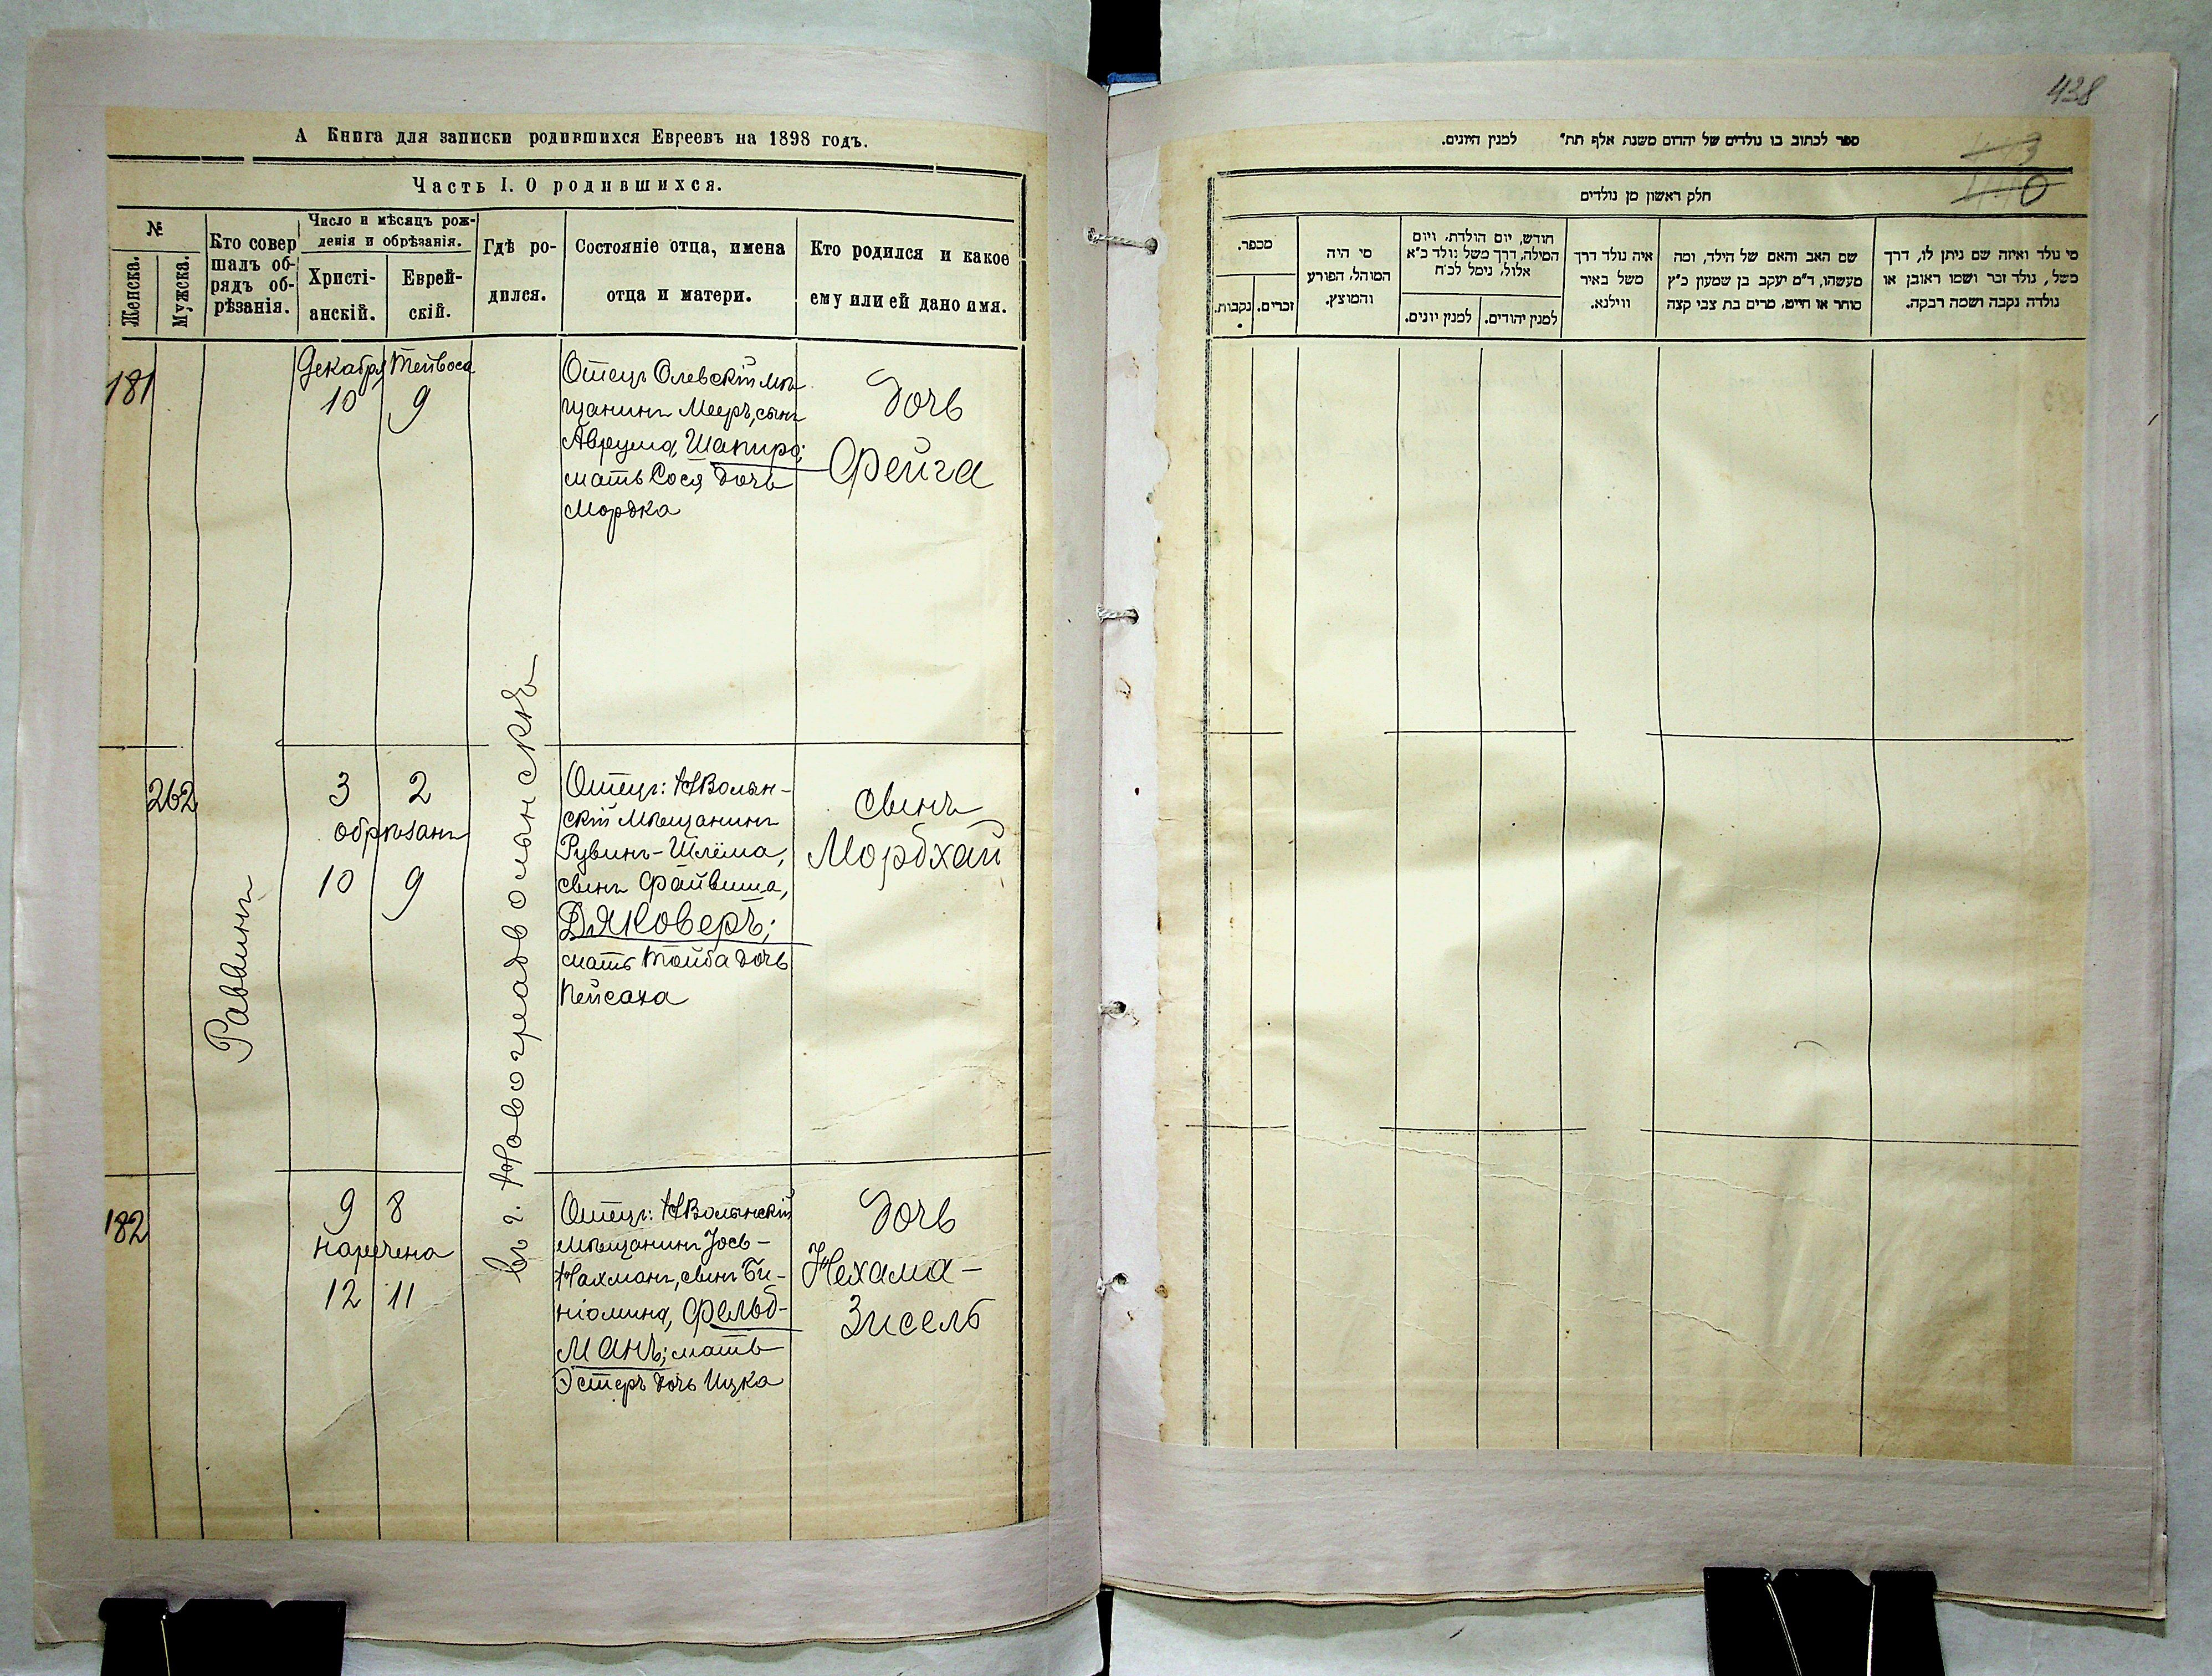 А Книга для записки родившихся Евреевъ на 1898 годъ.
Часть I. О родившихся.
№
Женска.
Мужска.
Кто совер
шалъ об-
рядъ об-
рѣзанія.
Число и мѣсяцъ рож-
денія и обрѣзанія.
Христі-
анскій.
Еврей-
скій.
Гдѣ ро-
дился.
Состояніе отца, имена
отца и матери.
Кто родился и какое
ему или ей дано имя.
181
Декабря Тейвоса
10 9
Отецъ Олевскій мѣ
щанинъ Мееръ, сынъ
Аврума, Шапиро;
мать Сося дочь
Мордка
дочь
Фейга
262
Раввинъ
3 2
обрѣзанъ
10 9
въ г. Новоградволынскѣ
Отецъ: НВолын-
скій мѣщанинъ
Рувинъ-Шлёма,
сынъ Файвиша,
Дяковеръ;
мать Тойба дочь
Пейсаха
сынъ
Мордхай
182
9 8
наречена
12 11
Отецъ: НВолынскій
мѣщанинъ Іось-
Нахманъ, сынъ Би-
ніомина, Фельд-
манъ; мать
Эстеръ дочь Ицка
дочь
Нехама-
Зисель
438
443
440
ספר לכתוב בו נולדים של יהדום משנת אלף תת״ למנין היונים.
חלק ראשון מן נולדים
מי נולד ואיזה שם ניתן לו, דרך
משל, נולד זכר ושמו ראובן או
נולדה נקבה ושמה רבקה.
שם האב והאם של הילד, ומה
מעשהו, ד״מ יעקב בן שמעון כ״ץ
סוחר או חייט, מרים בת צבי קצה
איה נולד דרך
משל באיר
ווילנא.
חודש, יום הולדת, ויום
המילה, דרך משל נולד כ״א
אלול, נימל לכ״ח
למנין יהודים.
למנין יונים.
מי היה
המוהל, הפורע
והמוצץ.
מכפר.
זכרים.
נקבות.